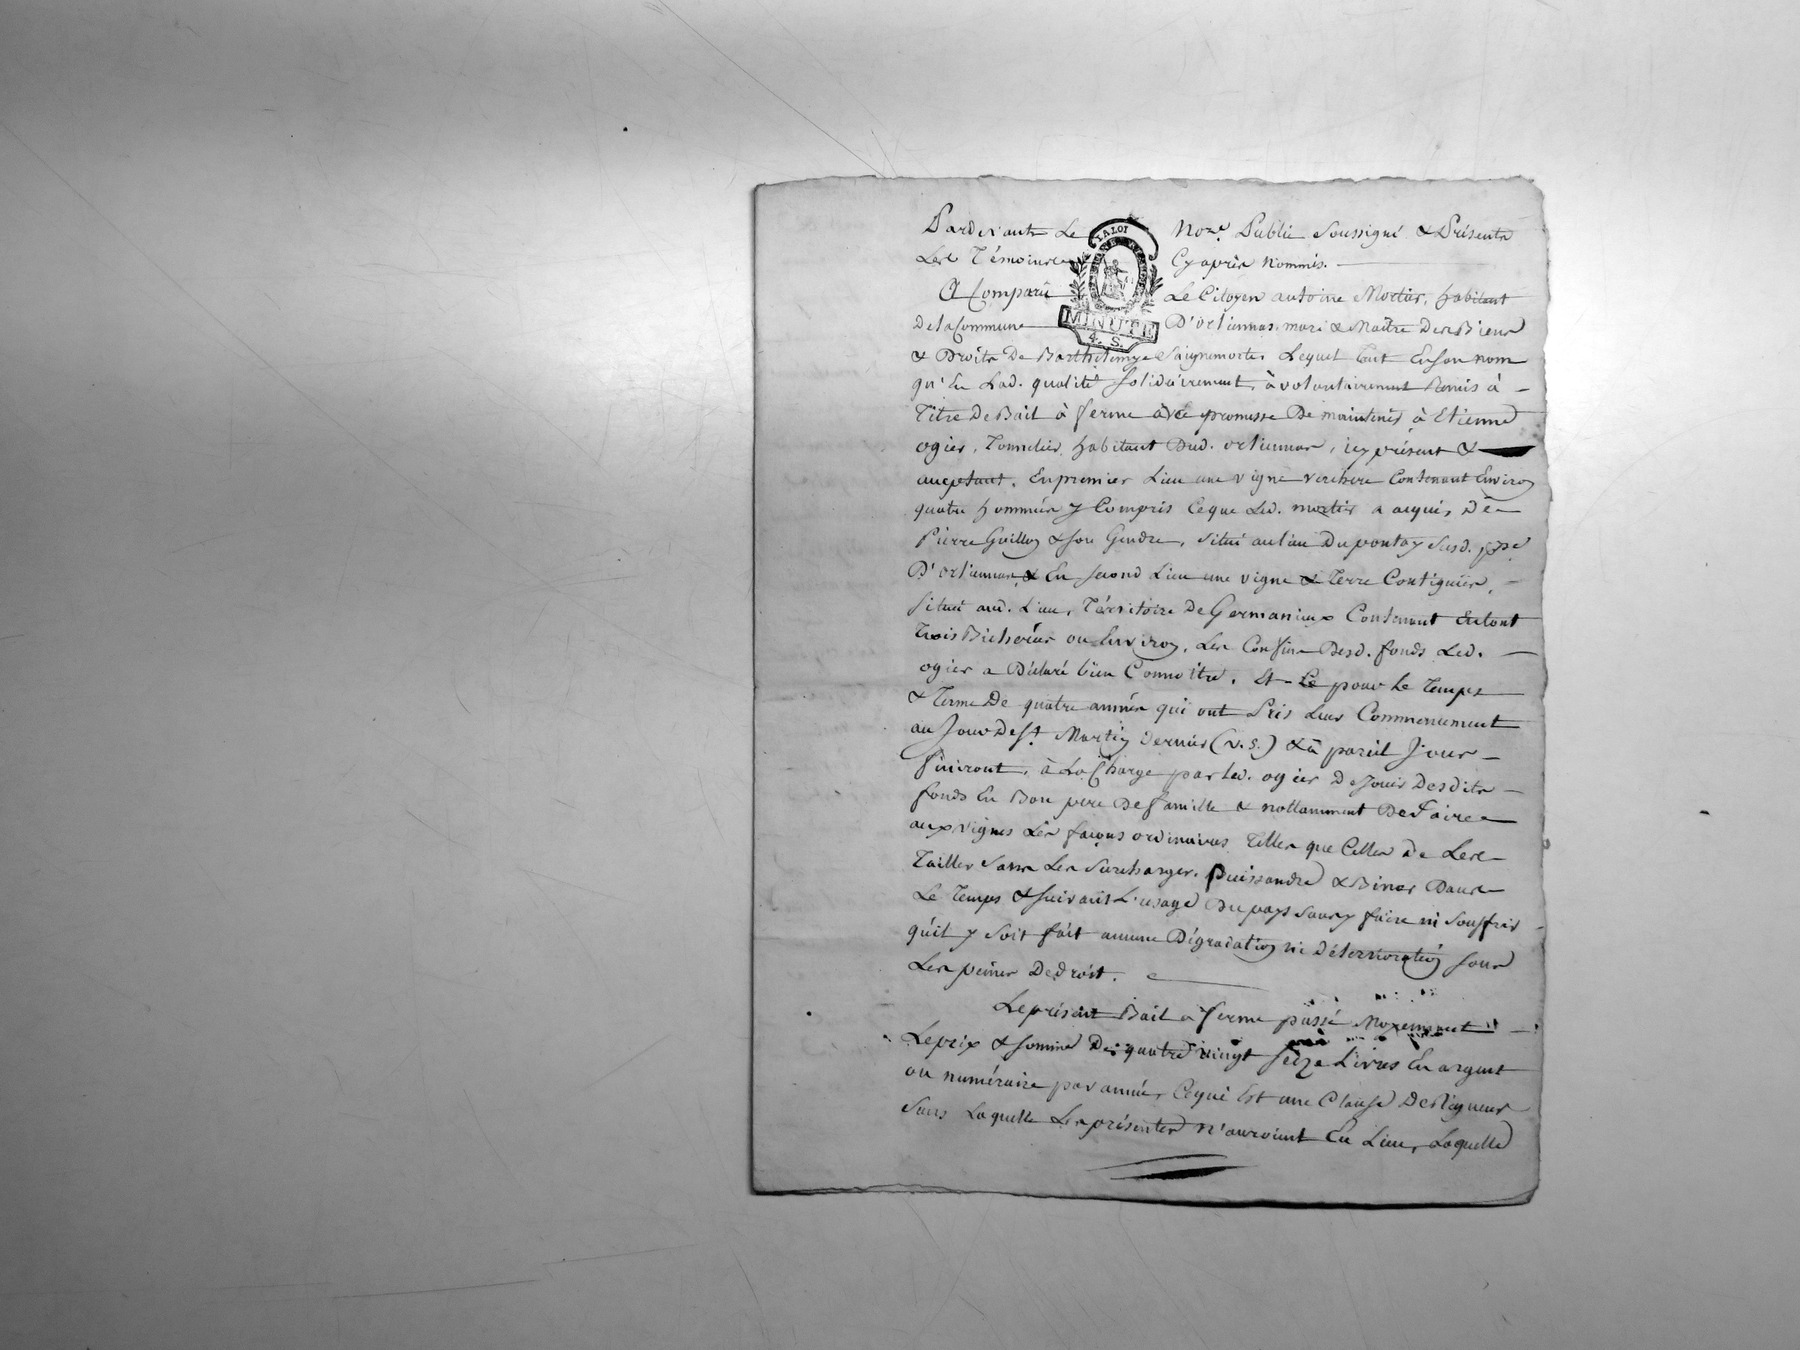 Pardevant Le Nore. Public soussigné & Présents
Les Témoins Cy après Nommés.
LA LOI
A Comparu Le Citoyen antoine Mortier, habitant
MINUTE
4. S.
De la Commune D'orliennas mari & Maître Des Biens
& Droits De Barthelemye Saignemorte, Lequel tant En son nom
qu'En Lad. qualité solidairement, à volontairement Remis à
Titre De Bail à ferme avec promesse De maintenir à Etienne
ogier, Tonnelier, habitant Dud. orliennas, icy présent &
acceptant, En premier Lieu une vigne verchere Contenant Environ
quatre hommées y Compris Ceque Led. mortier a acquis De
Pierre Guillon & son Gendre, situé au lieu Du pontay susd. psse
D'orliennas, & En second Lieu une vigne & Terre Contiguës,
situé aud. Lieu, Térritoire De Germanieux Contenant En tout
Trois Bicherées ou Environ, Les Confins Desd. fonds Led.
ogier a Déclaré bien Connoître. Et Ce pour le Temps
& Terme De quatre années qui ont Pris Leur Commencement
au Jour De St. Martin dernier (v. s.) & à pareil Jour
finiront, à La Charge par led. ogier De Jouir Desdits
fonds En Bon pere De famille & nottamment De Faire
aux vignes Les façons ordinaires Telles que Celles De Les
Tailler sans Les surcharger, & Biner Dans
Le Temps & suivant L'usage Du pays sans y faire ni souffrir
qu'il y soit fait aucune Dégradation ni Détérioration sous
Les peines De droit.
Le présent Bail a ferme passé Moyennant
Le prix & somme De quatre vingt seize Livres En argent
ou numéraire par année, Cequi Est une Clause De Rigueur
sans Laquelle Les présentes n'auroient Eu Lieu, Laquelle